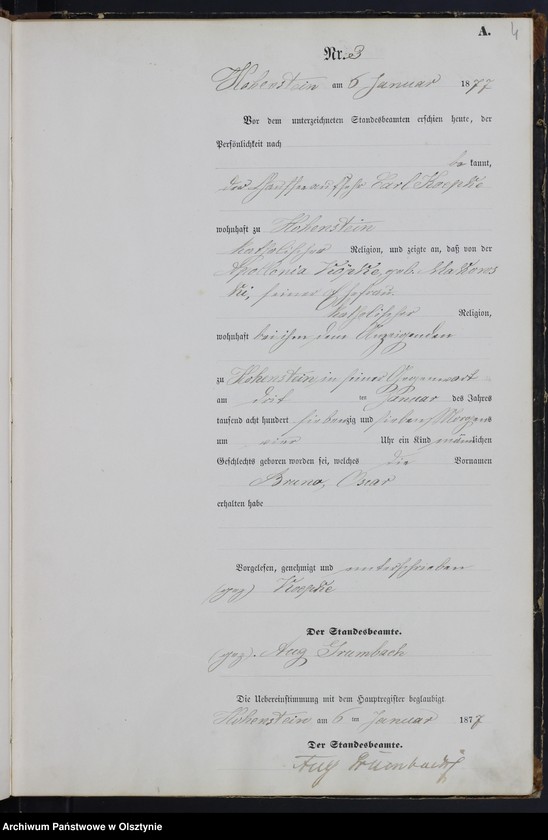 A. 4
Nr. 3
Hohenstein am 6 Januar 1877
Vor dem unterzeichneten Standesbeamten erschien heute, der
Persönlichkeit nach
be kannt,
der Chausseeaufseher Carl Koepke
wohnhaft zu Hohenstein
katholischer Religion, und zeigte an, daß von der
Apollonia Köpke, geb.
ki, seiner Ehefrau
katholischer Religion,
wohnhaft bei ihm dem Anzeigenden
zu Hohenstein in seiner Gegenwart
am drit ten Januar des Jahres
tausend acht hundert siebenzig und sieben Morgens
um vier Uhr ein Kind männlichen
Geschlechts geboren worden sei, welches die Vornamen
Bruno, Oscar
erhalten habe
Vorgelesen, genehmigt und unterschrieben
(gez) Koepke
Der Standesbeamte.
(gez). Aug Grumbach
Die Uebereinstimmung mit dem Hauptregister beglaubigt
Hohenstein am 6 ten Januar 1877
Der Standesbeamte.
Aug Grumbach
Archiwum Państwowe w Olsztynie